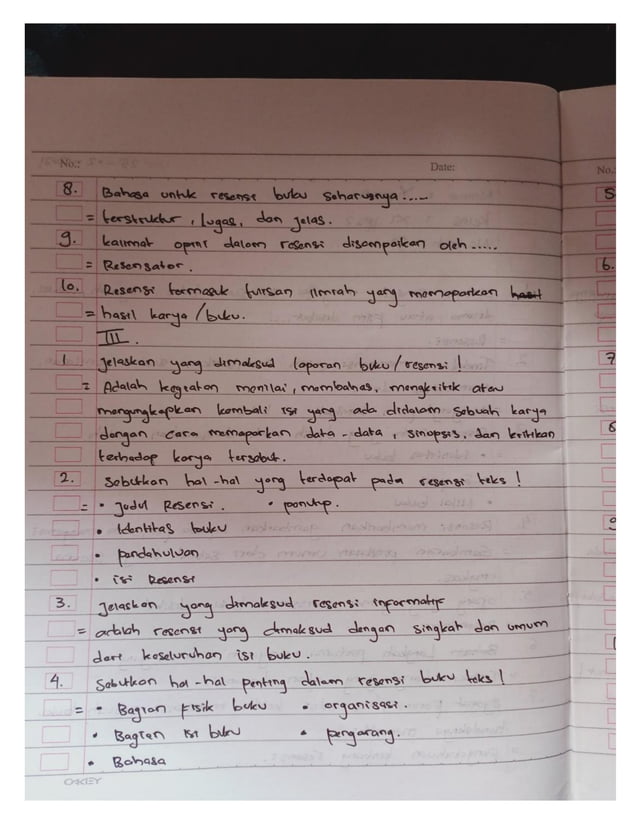 No.:
Date:
No.:
8. Bahasa untuk resensi buku seharusnya.....
= terstruktur, lugas, dan jelas.
9. kalimat opini dalam resensi disampaikan oleh.....
= Resensator.
10. Resensi termasuk tulisan ilmiah yang memaparkan hasil
= hasil karya / buku.
III.
1 Jelaskan yang dimaksud laporan buku / resensi !
= Adalah kegiatan menilai, membahas, mengkritik atau
mengungkapkan kembali isi yang ada didalam sebuah karya
dengan cara memaparkan data-data, sinopsis, dan kritikan
terhadap karya tersebut.
2. Sebutkan hal-hal yang terdapat pada resensi teks !
= • Judul Resensi. • penutup.
• Identitas buku
• pendahuluan
• isi Resensi
3. Jelaskan yang dimaksud resensi informatif
= adalah resensi yang dimaksud dengan singkat dan umum
dari keseluruhan isi buku.
4. Sebutkan hal-hal penting dalam resensi buku teks !
= • Bagian Fisik buku • organisasi.
• Bagian isi buku • pengarang.
• Bahasa
5
6.
7
8
9